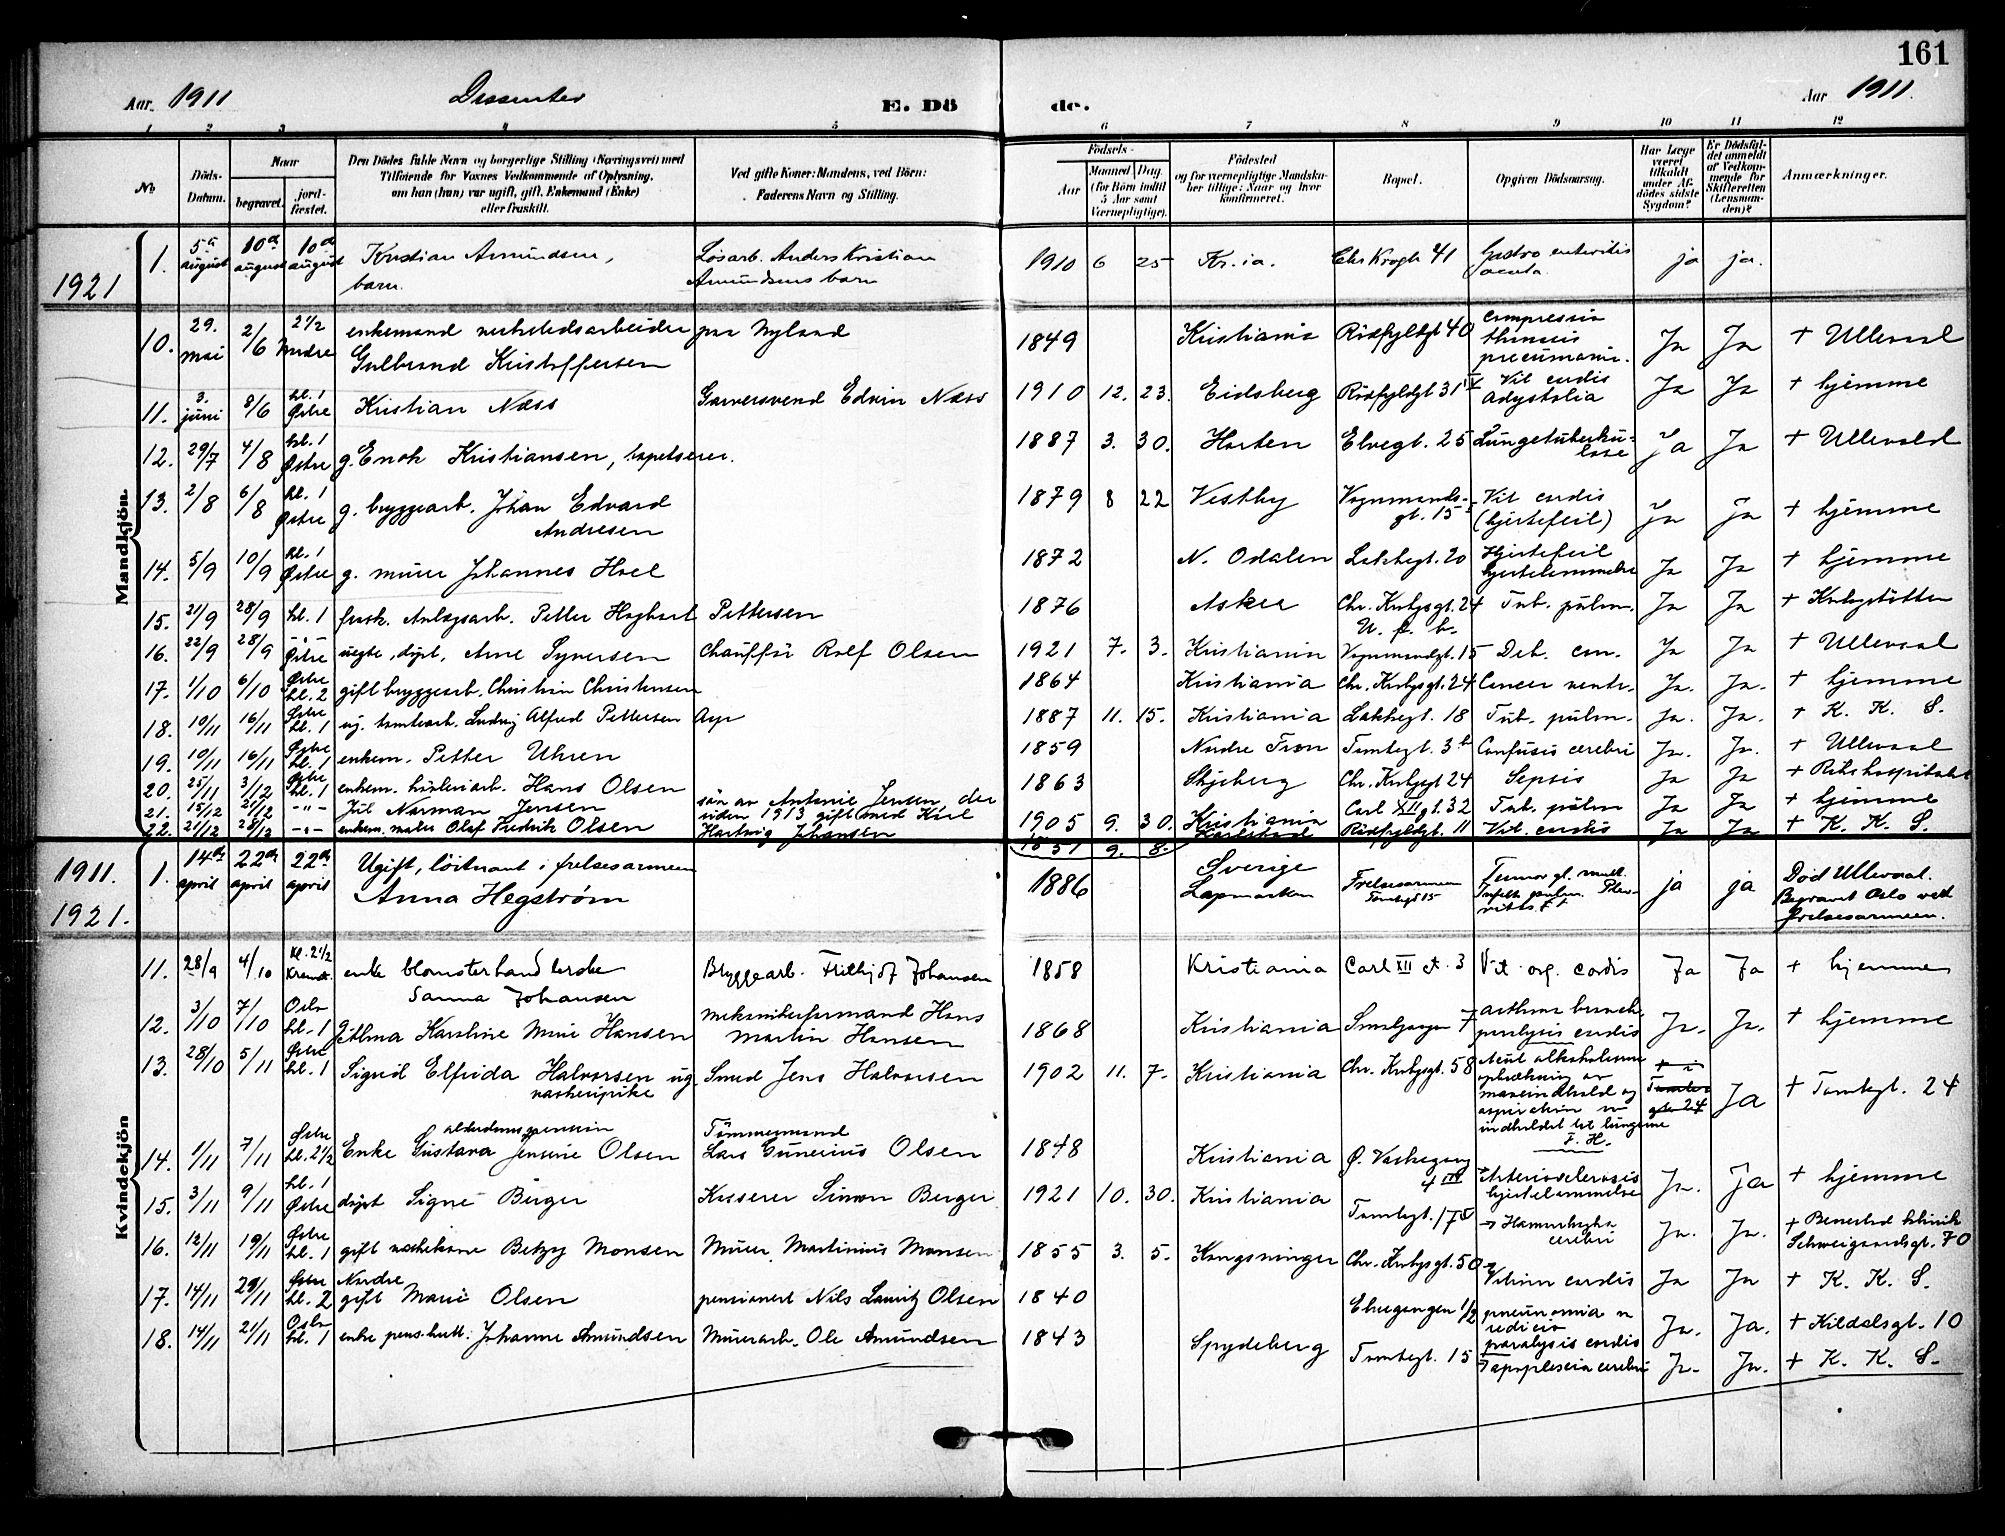 161
Aar. 1911 Dissenter E. Dö de. Aar 1911.
1 2 3 4 5 6 7 8 9 10 11 12
No Döds-Datum. Naar begravet. jordfæstet. Den Dödes fulde Navn og borgerlige Stilling (Næringsvei) med Tilföiende for Voxnes Vedkommende af Oplysning, om han (hun) var ugift, gift, Enkemand (Enke) eller fraskilt. Ved gifte Koner: Mandens, ved Börn: Faderens Navn og Stilling. Födsels- Aar Maaned Dag (for Börn indtil 5 Aar samt Værnepligtige). Födested og for værnepligtige Mandskaber tillige: Naar og hvor konfirmeret. Bopæl. Opgiven Dödsaarsag. Har Læge været tilkaldt under Afdödes sidste Sygdom? Er Dödsfaldet anmeldt af Vedkommende for Skifteretten (Lensmanden)? Anmærkninger.
Mandkjön
1. 5te august 10de august 10de august Kristian Amundsen, barn. Løsarb. Anders Kristian Amundsens barn 1910 6 25 Kr.ia. Chr Krogh 41 Gastro enteritis acuta. ja ja.
1921
10. 29. mai 2/6 2 1/2 Nordre enkemand verkstedsarbeider paa Nyland Gulbrand Kristoffersen 1849 Kristiania Rødfyldgt 40 Compressio pneumoni. Ja Ja + Ullevaal
11. 3. juni 8/6 kl. 1 Østre Kristian Næss Garversvend Edvin Næss 1910 12. 23. Eidsberg Rødfyldgt 31 Vit. cordis Adystolia Ja Ja + hjemme
12. 29/7 4/8 kl. 1 Østre g. Enok Kristiansen, tapetserer. 1887 3. 30. Horten Elvegt. 25 Lungetuberkulose Ja Ja + Ullevaal
13. 2/8 6/8 kl. 1 Østre g. bryggearb. Johan Edvard Andresen 1879 8 22 Vestby Vognmandsgt. 15 Vit. cordis (hjertefeil) Ja Ja + hjemme
14. 5/9 10/9 kl. 1 Østre g. murer Johannes Hoel 1872 N. Odalen Lakkegt. 20 Hjertefeil hjertelammelse Ja Ja + hjemme
15. 21/9 28/9 kl. 1 frask. Anlægsarb. Petter Hagbart Pettersen 1876 Asker Chr. Krohgsgt. 24 U. f. b. Tub. pulm. Ja Ja + Krohgstøtten
16. 22/9 28/9 -"- Østre uegte, døpt, Arne Syversen Chauffør Rolf Olsen 1921 7. 3. Kristiania Vognmandgt. 15 Deb. con. Ja Ja + Ullevaal
17. 1/10 6/10 Østre kl. 2 gift bryggearb. Christian Christensen 1864 Kristiania Chr. Krohgsgt. 24 Cancer ventr. Ja. Ja. + hjemme
18. 10/11 16/11 Østre kl. 1 ug. tomtearb. Ludvig Alfred Pettersen 1887 11. 15. Kristiania Lakkegt. 18 Tub. pulm. Ja. Ja. + K. K. S.
19. 10/11 16/11 Østre kl. 1 enkem. Petter Uhren 1859 Nordre Tron Tomtegt. 3 b Confusio cerebri Ja. Ja. + Ullevaal
20. 25/11 3/12 Østre kl. 1 enkem. Hans Olsen 1863 Skjeberg Chr. Krohgsgt 24 Sepsis Ja Ja + Rikshospitalet
21. 15/12 21/12 -"- Jul Norman Jensen søn av Antonie Jensen, der siden 1913 gift med Karl Hartvig Johansen 1905 9. 30. Kristiania Carl XII gt. 32 Tub. pulm Ja Ja + hjemme
22. 21/12 28/12 -"- enkem. maler Olaf Fredrik Olsen 1851 9. 8. Rødfyldgt. 11 Vit. cordis Ja Ja + K. K. S.
Kvindekjön
1911. 1. 14de april 22de april 22de april Ugift, löitnant i frelsesarmeen Anna Hegström 1886 Sverige Lapmarken Frelsesarmeen Tomtegt 15 Tumor gl. Ja ja Død Ullevaal. Begravet Oslo ved Frelsesarmeen.
1921.
11. 28/9 4/10 Kl. 2 1/2 Kremat. enke blomsterhandlerske Sanna Johansen Bryggearb. Frithjof Johansen 1858 Kristiania Carl XII gt. 3 Vit. org. cordis Ja Ja + hjemme
12. 3/10 7/10 Oslo kl. 1 Thma Karoline Marie Hansen mekanikerformand Hans Martin Hansen 1868 Kristiania Smalgangen 7 asthma bronch. paralysis cordis Ja. Ja. + hjemme
13. 28/10 5/11 Østre kl. 1 Sigrid Elfrida Halvorsen ug. vaskeripike Smed Jens Halvorsen 1902 11. 7. Kristiania Chr. Krohgsgt. 58 Acut alkoholisme opkastning av maveindhold og aspiration av indholdet til lungerne F. H. + i Tomtegaten 24 Ja + Tomtegt. 24
14. 1/11 7/11 Østre kl. 2 1/2 alderdomspension Enke Gustava Jensine Olsen Tømmermand Lars Gunerius Olsen 1848 Kristiania Ø. Vaskegang 4 III Arteriosclerosis hjertelammelse Ja. Ja + hjemme
15. 3/11 9/11 kl. 1 Østre døpt Signe Berger Kasserer Simon Berger 1921 10. 30. Kristiania Tomtegt. 17 Hæmorrhagia cerebri Ja. Ja. + Benestad klinik Schweigaardsgt. 70
16. 12/11 19/11 Østre kl. 1 gift vaskekone Betzy Monsen Murer Martinius Monsen 1855 3. 5. Kongsvinger Chr. Krohgsgt. 50 Vitium cordis Ja Ja + K. K. S.
17. 14/11 29/11 Østre kl. 2 Nordre gift Marie Olsen pensionert Nils Lauritz Olsen 1840 Elvegangen 1/2 pneumonia paralysis cordis Ja. Ja. + Kildalsgt. 10
18. 14/11 21/11 Oslo kl. 1 enke Johanne Amundsen Murerarb. Ole Amundsen 1843 Spydeberg Tomtegt. 15 apoplexia cerebri Ja. Ja. + K. K. S.